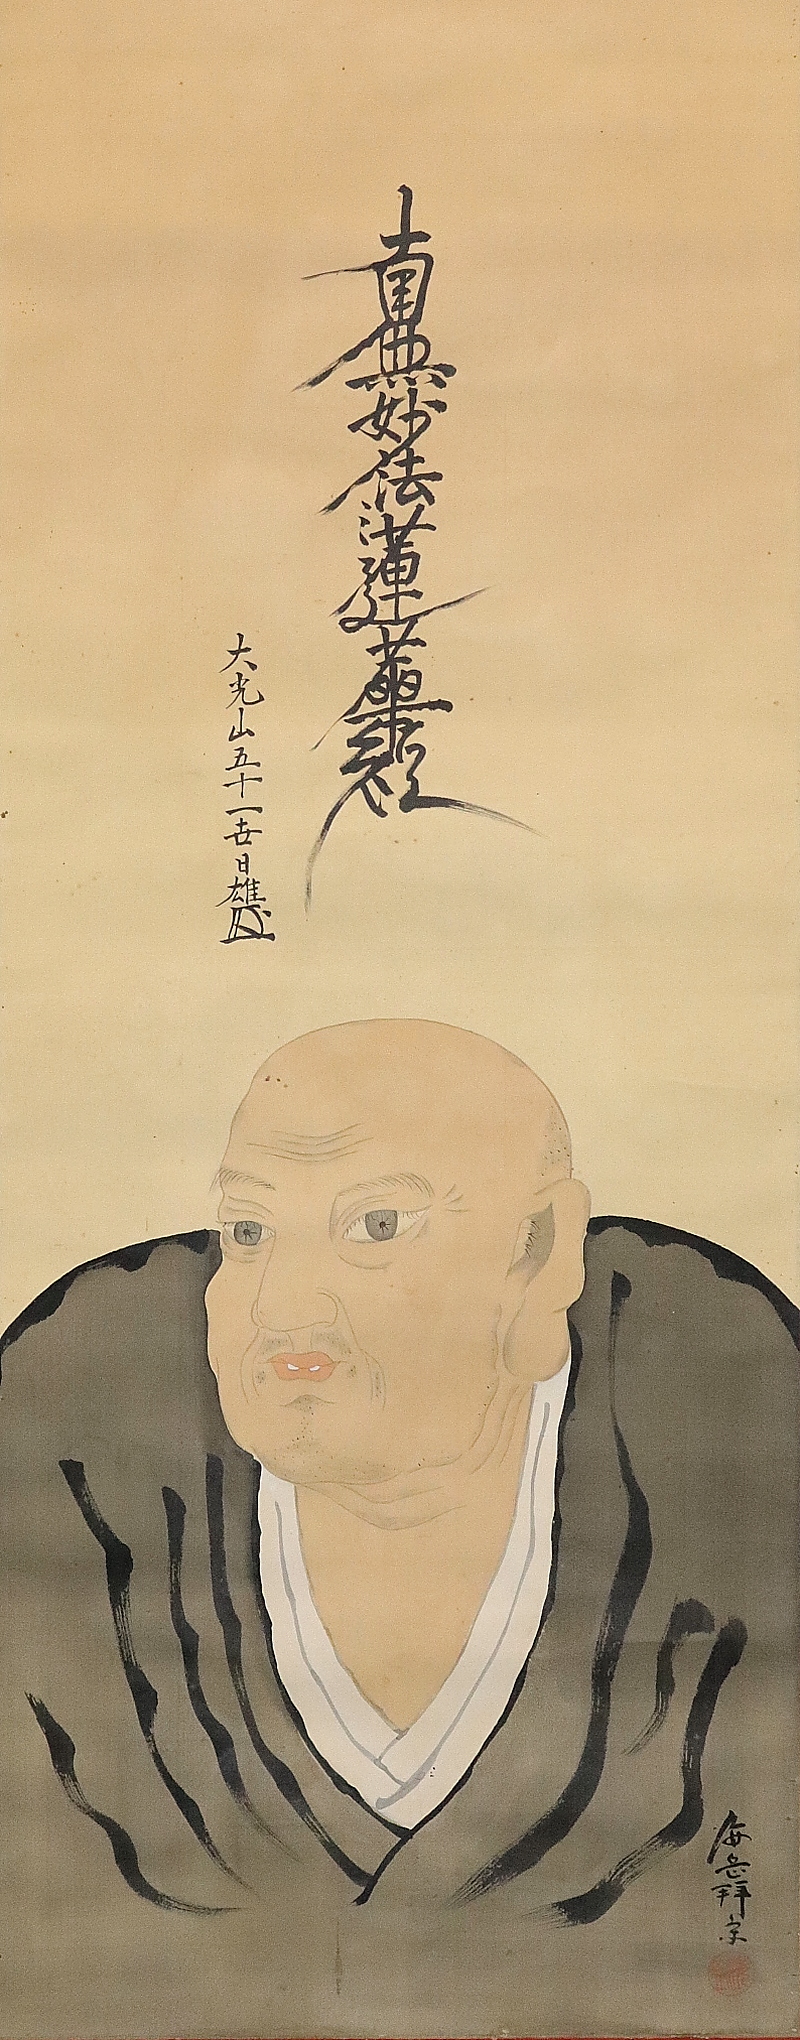 南無妙法蓮華經
大光山五十一世日雄
海岳拜写